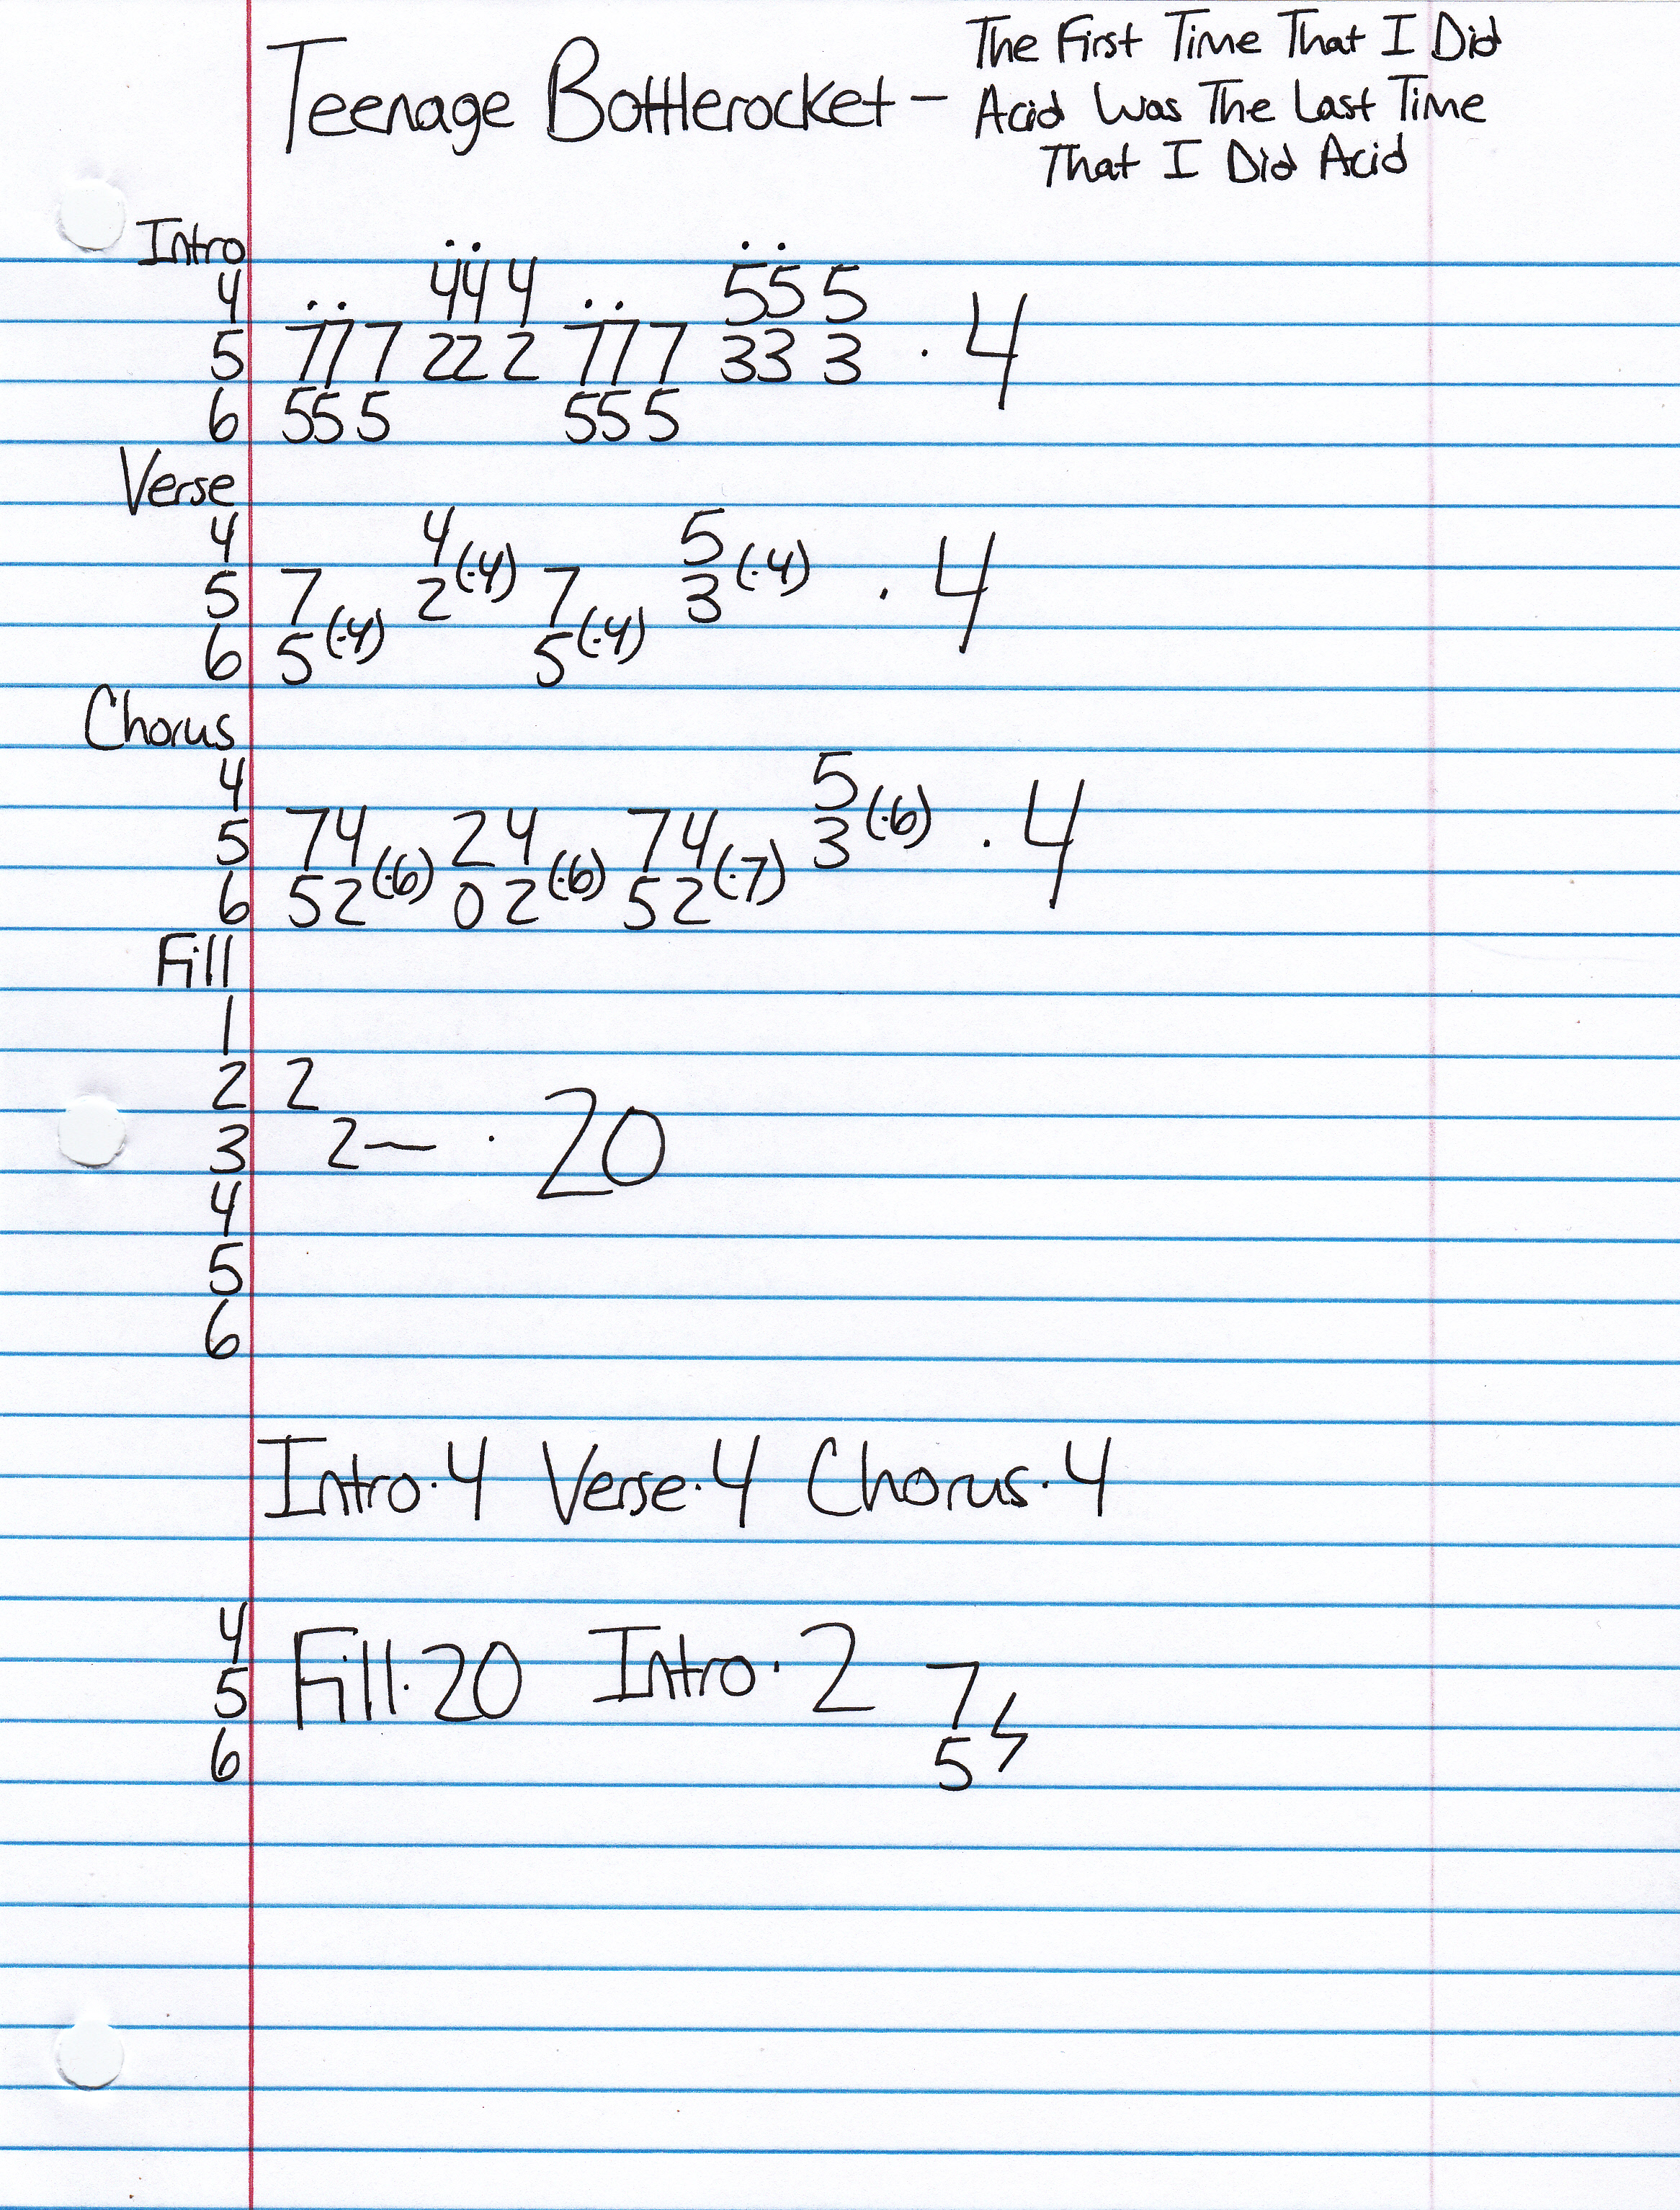 Teenage Bottlerocket - The First Time That I Did
Acid Was The Last Time
That I Did Acid
Intro
4 444 555
5 777 222 777 333 · 4
6 555 555
Verse
4 4(·4) 5(·4)
5 7 2 7 3 · 4
6 5(·4) 5(·4)
Chorus
4 5(·6)
5 74 24 74 3 · 4
6 52(·6) 02(·6) 52(·7)
Fill
1
2 2
3 2— · 20
4
5
6
Intro·4 Verse·4 Chorus·4
4
5 Fill·20 Intro·2 7
6 5